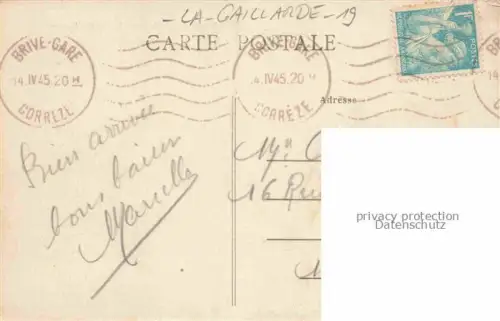 -LA-GAILLARDE-19
CARTE POSTALE
BRIVE-GARE
14.IV45.20H
CORRÈZE
BRIVE-GARE
14.IV45.20H
CORRÈZE
Adresse
Bien arrivée
bons baisers
Marcelle
16 Rue
privacy protection
Datenschutz